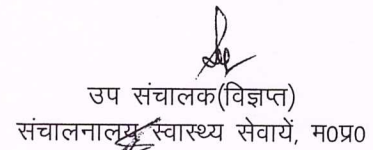 उप संचालक(विज्ञप्त)
संचालनालय स्वास्थ्य सेवायें, म0प्र0